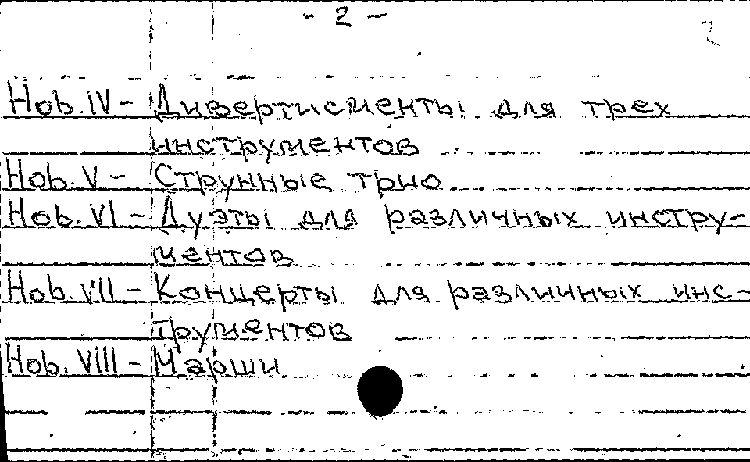 - 2 -
Hob. IV - Дивертисменты для трех
инструментов
Hob. V - Струнные трио
Hob. VI - Дуэты для различных инстру-
ментов
Hob. VII - Концерты для различных инс-
трументов
Hob. VIII - Марши